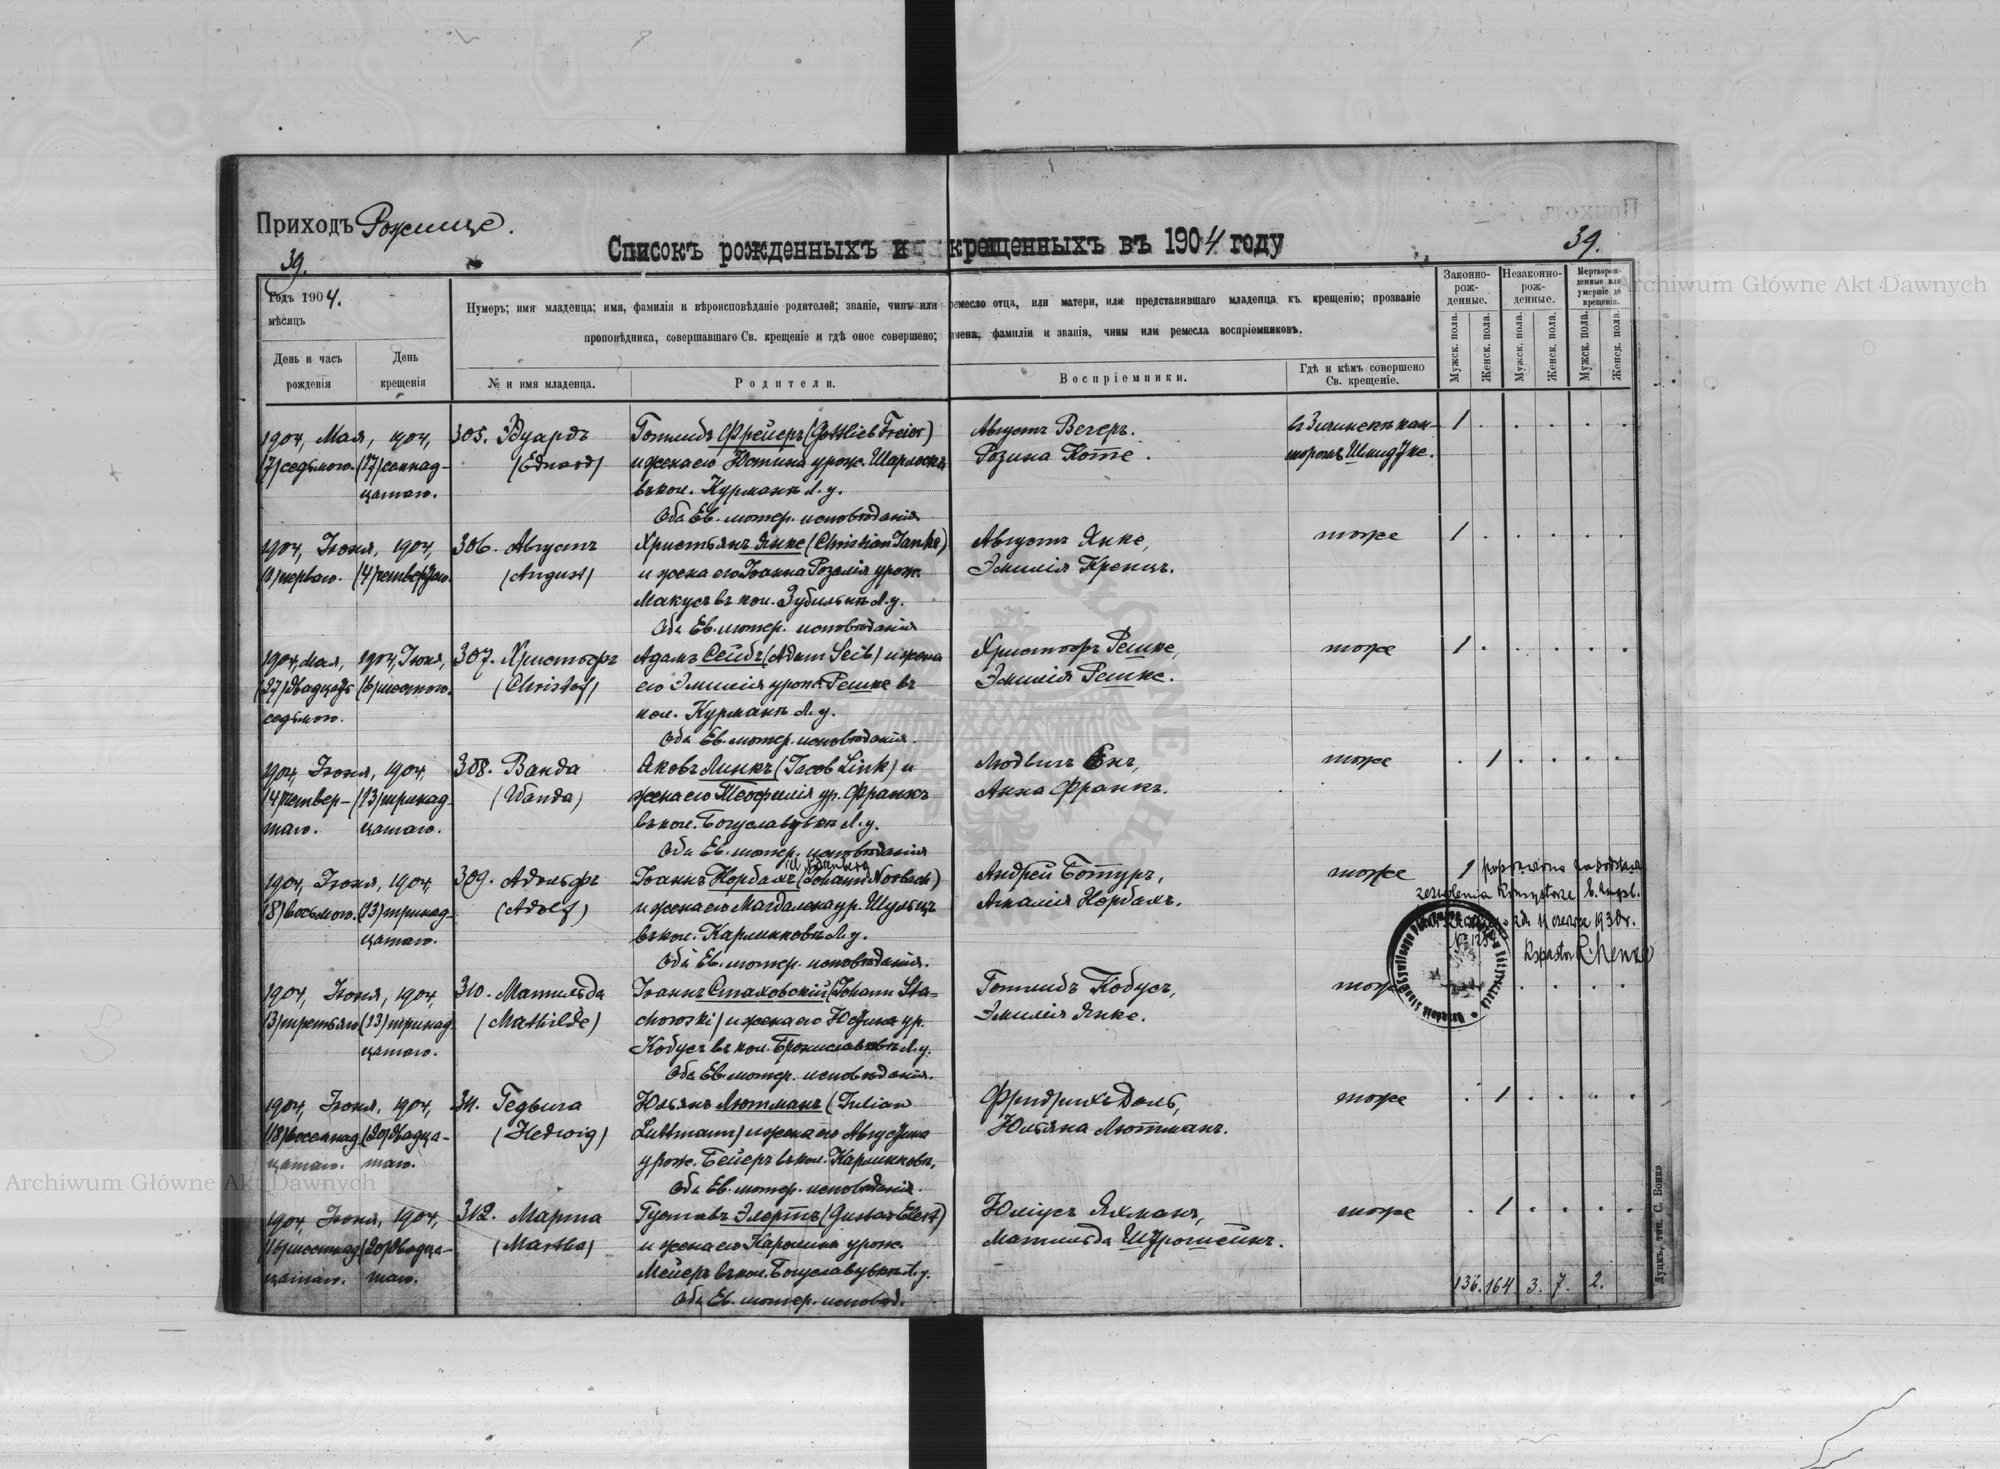 Приходъ Рожище.
Списокъ рожденныхъ и крещенныхъ въ 1904 году
39.
39.
Годъ 1904.
мѣсяцъ
День и часъ рожденія
День крещенія
Нумеръ; имя младенца; имя, фамилія и вѣроисповѣданіе родителей; званіе, чинъ или ремесло отца, или матери, или представившаго младенца къ крещенію; прозваніе
проповѣдника, совершавшаго Св. крещеніе и гдѣ оное совершено; имена, фамиліи и званія, чины или ремесла воспріемниковъ.
№ и имя младенца.
Родители.
Воспріемники.
Гдѣ и кѣмъ совершено Св. крещеніе.
Законно-рож-денные.
Незаконно-рож-денные.
Мертворож-денные или умершіе до крещенія.
Мужск. пола.
Женск. пола.
Мужск. пола.
Женск. пола.
Мужск. пола.
Женск. пола.
1904, Мая, 1904, 305. Эдуардъ Готлибъ Фрейеръ (Gottlieb Freier) Августъ Вегеръ. 1
(7) седьмого. (17) семнад- (Eduard) и жена его Юстина урож. Розина Готте.
цатаго. въ кол. Курманъ Л. у.
Оба Ев. лютер. исповѣданія
1904, Іюня, 1904, 306. Августъ Христьянъ Янке (Christian Janke) Августъ Янке, тоже 1
(1) перваго. (4) четвертаго. (August) и жена его Іоанна Розалія урож. Эмилія Кренцъ.
Макусъ въ кол. Л. у.
Оба Ев. лютер. исповѣданія
1904, Мая, 1904, Іюня, 307. Христофъ Адамъ Сейбъ (Adam Seib) и жена Христофъ Решке, тоже 1
(27) двадцать (6) шестого. (Christof) его Эмилія урож. Решке въ Эмилія Решке.
седьмого. кол. Курманъ Л. у.
Оба Ев. лютер. исповѣданія.
1904, Іюня, 1904, 308. Ванда Яковъ Линкъ (Jacob Link) и Людвигъ тоже 1
(4) четвер- (13) тринад- (Wanda) жена его Теофилія ур. Франкъ Анна Франкъ.
таго. цатаго. въ кол. Богуславувкѣ Л. у.
Оба Ев. лютер. исповѣданія
1904, Іюня, 1904, 309. Адольфъ Іоаннъ Норбахъ (Johann Norbach) Андрей Ботуръ, тоже 1
(8) восьмого. (13) тринад- (Adolf) и жена его Магдалена ур. Шульцъ Амалія Норбахъ.
цатаго. въ кол. Карлинковъ Л. у.
Оба Ев. лютер. исповѣданія.
1904, Іюня, 1904, 310. Матильда Іоаннъ Стаховскій (Johann Sta- Готлибъ Кобусъ, тоже
(3) третьяго (13) тринад (Mathilde) chowski) и жена его ур. Эмилія Янке.
цатаго. Кобусъ въ кол. Брониславовкѣ Л. у.
Оба Ев. лютер. исповѣданія.
1904, Іюня, 1904, 311. Гедвига Юльянъ Лютманъ (Julian Фридрихъ Доль, тоже 1
(18) восемнад (20) двадца- (Hedwig) Luttmann) и жена его Августина Юльяна Лютманъ.
цатаго. таго. урож. Бейеръ въ кол. Карлинковъ.
Оба Ев. лютер. исповѣданія.
1904, Іюня, 1904, 312. Марта Густавъ Элертъ (Gustav Elert) Юліусъ Яхманъ, тоже 1
(16) шестнад (20) двадца- (Martha) и жена его Каролина урож. Матильда
цатаго. таго. Мейеръ въ кол. Богуславувкѣ Л. у.
Оба Ев. лютер. исповѣд.
136. 164. 3. 7. 2.
Луцкъ, тип. С. Бонко
Archiwum Główne Akt Dawnych
Archiwum Główne Akt Dawnych